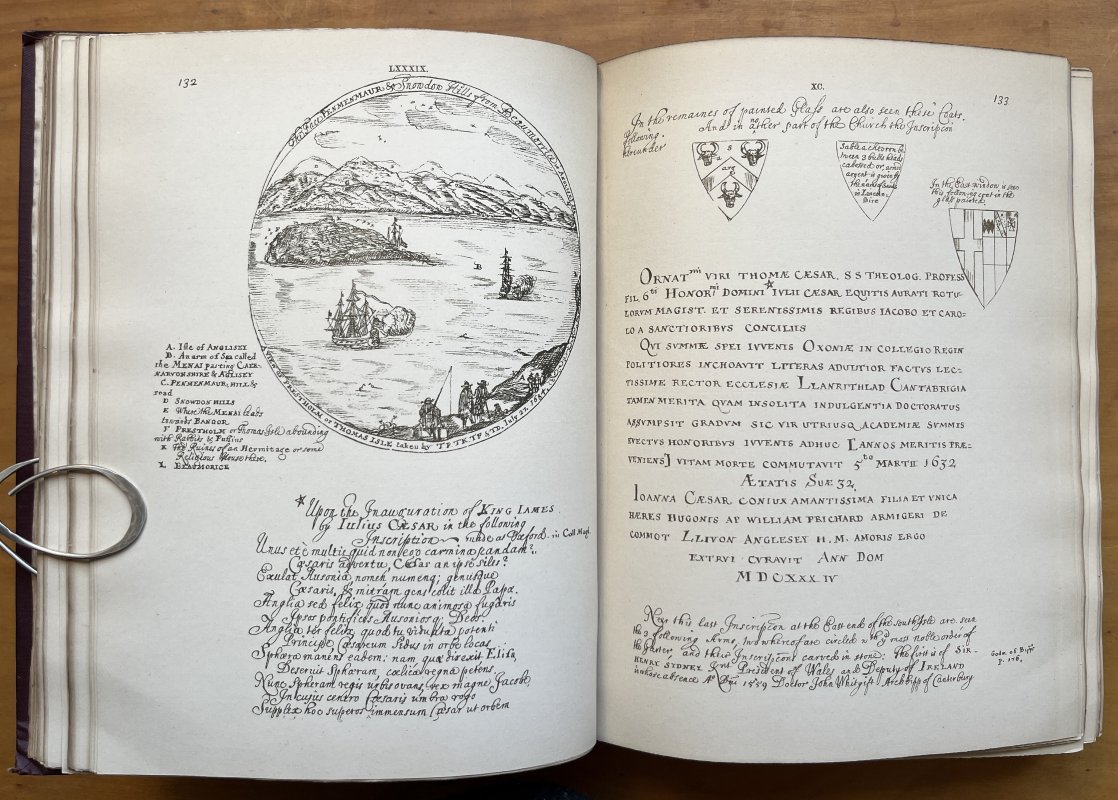 132
LXXXIX.
PENMENMAUR & Snowdon Hills from Beaumorrice
A view of PRESTHOLM or THOMAS ISLE taken by TP TK TP & TD. July 22. 1684
B
A. Isle of ANGLISEY
B. An arm of Sea called
the MENAI parting CAER-
NARVONSHIRE & AGLISEY
C. PENMENMAUR; HILL &
road
D SNOWDON HILLS
E Where the MENAI leads
towards BANGOR
F PRESTHOLM or Thomas Isle abounding
with Rabbits & Puffins
K The Ruines of an Hermitage or some
Religious House there.
L BEAUMORICE
* Upon the Inauguration of KING IAMES
by IULIUS CÆSAR in the following
Inscription made at Oxford. in Coll Magd.
Unus et è multis quid non ego carmina pandam?
Cæsaris adventu, Cæsar an ipse siles?
Exulat Ausonia nomen numenq; genusque
Cæsaris, & mitram gens colit illa Papæ.
Anglia sed felix quod nunc animosa fugaris
Ipsos pontifices Ausoniosq; Deos.
Anglia ter felix quod tu viduata potenti
Principe Cæsareum Sidus in orbe locas
Sphæra manens eadem: nam quæ direxit Elisa
Deseruit Sphæram, cælica regna petens
Nunc Spheram regis urbis ovans, rex magne Jacobe
In cujus centro Cæsaris umbra rogo
Supplex hoc superos immensum Cæsar ut orbem
XC.
133
In the remaines of painted Glass are also seen these Coats.
following. And in another part of the Church the Inscripcon
hereunder
a s
arg
Sable a chevron be
tween 3 bulls heads
cabossed or, armed
argent is given by
the name of
in Lancas-
hire
In the East window is seen
this following coat in the
glass painted.
ORNATmi VIRI THOMÆ CÆSAR, S S THEOLOG. PROFESS
FIL 6ti HONORmi DOMINI * IVLII CÆSAR EQUITIS AURATI ROTU-
LORVM MAGIST. ET SERENISSIMIS REGIBUS IACOBO ET CARO-
LO A SANCTIORIBUS CONCILIIS
QUI SUMMÆ SPEI IUVENIS OXONIÆ IN COLLEGIO REGIN
POLITIORES INCHOAVIT LITERAS ADULTIOR FACTVS LEC-
TISSIME RECTOR ECCLESIÆ LLANRITHLAD CANTABRIGIA
TAMEN MERITA QVAM INSOLITA INDULGENTIA DOCTORATUS
ASSVMPSIT GRADVM SIC VIR UTRIUSQ ACADEMIÆ SUMMIS
EVECTVS HONORIBVS IUVENIS ADHUC [ANNOS MERITIS PRÆ-
VENIENS] VITAM MORTE COMMUTAVIT 5to MARTII 1632
ÆTATIS SUÆ 32.
IOANNA CÆSAR CONIUX AMANTISSIMA FILIA ET UNICA
HÆRES HUGONIS AP WILLIAM PRICHARD ARMIGERI DE
COMMOT LLIVON ANGLESEY H. M. AMORIS ERGO
EXTRVI CVRAVIT ANN DOM
M DCXXX IV
Near this last Inscripcon at the East end of the South Isle are seen
the 3 following Arms, two whereof are circled wth ye most noble order of
the Garter and their Inscripcons carved in stone; The first is of SIR
HENRY SYDNEY Lord President of Wales and Deputy of IRELAND
in whose absence Ao Dni 1559 Doctor John Whitgift Archbipp of Canterbury
p. 176.